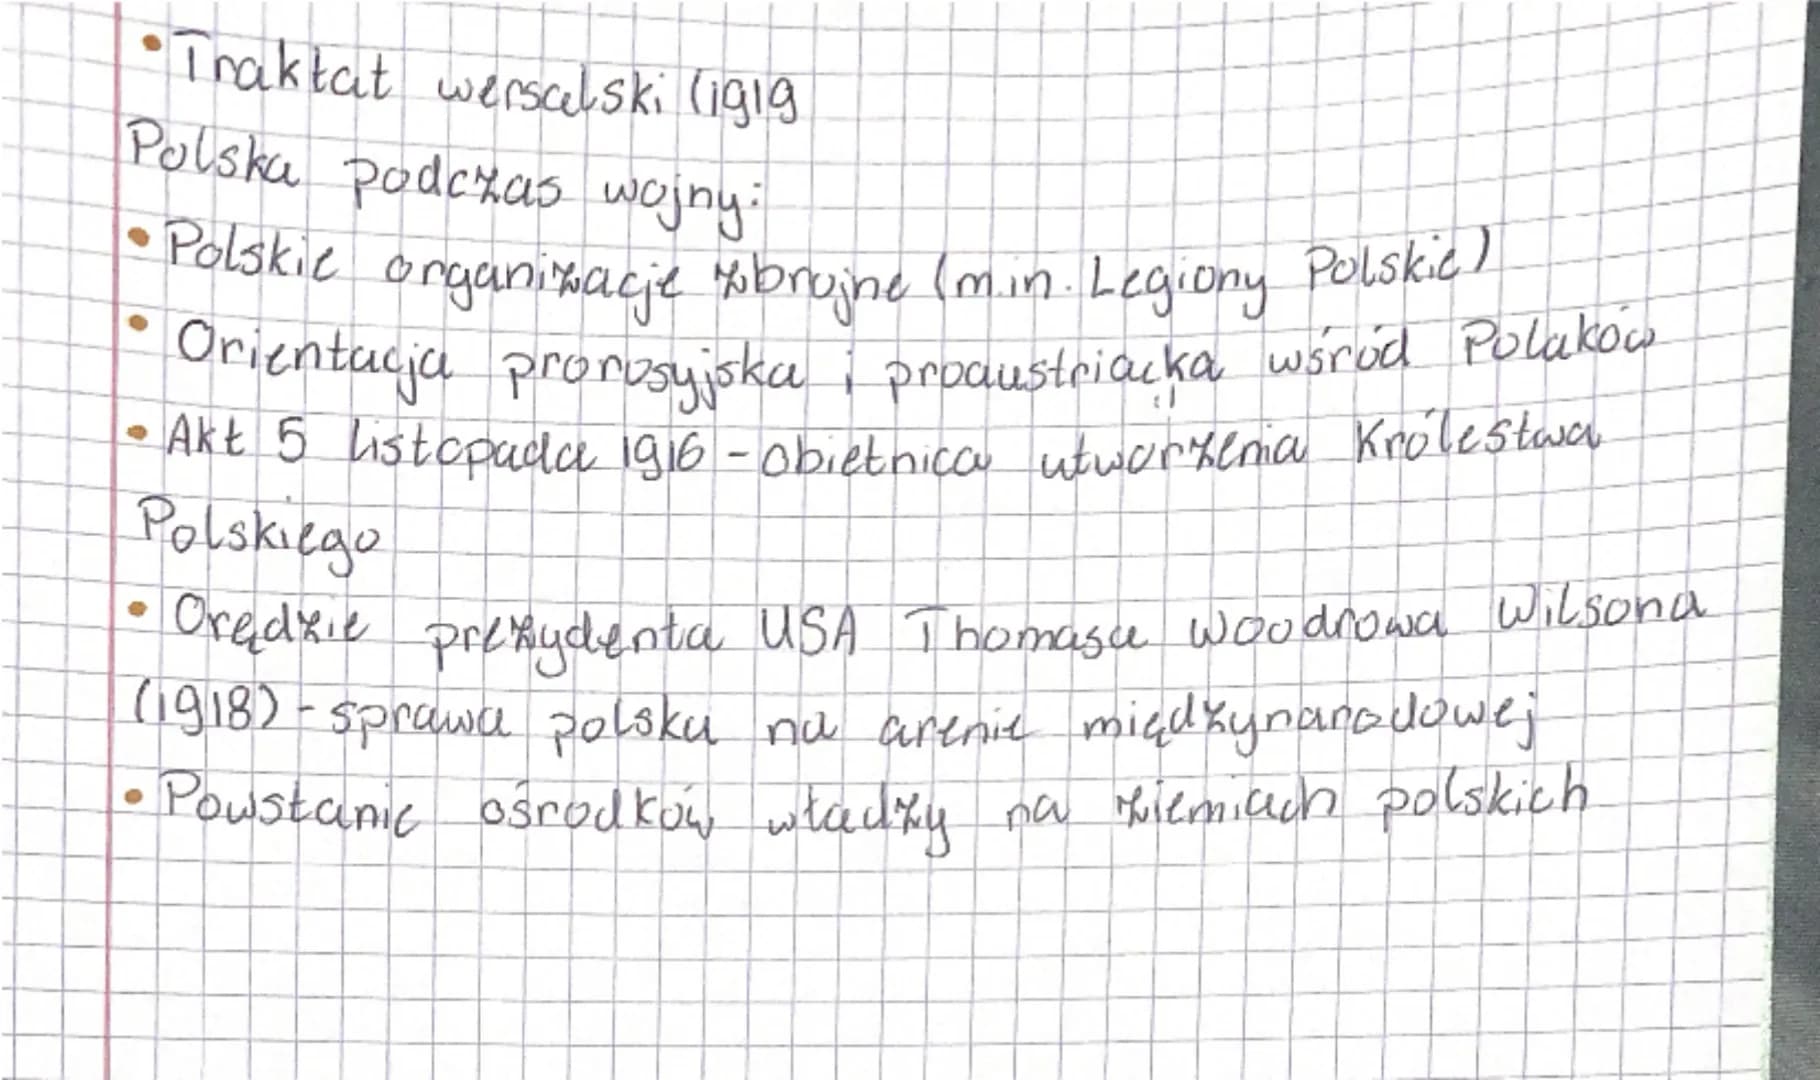 • Traktat wersalski (1919
Polska podczas wojny:
• Polskie organizacje zbrojne (m.in. Legiony Polskie)
• Orientacja prorosyjska i proaustriacka wśród Polaków
• Akt 5 listopada 1916 - obietnica utworzenia Królestwa
Polskiego
• Orędzie prezydenta USA Thomasa Woodrowa Wilsona
(1918) - sprawa polska na arenie międzynarodowej
• Powstanie ośrodków władzy na ziemiach polskich